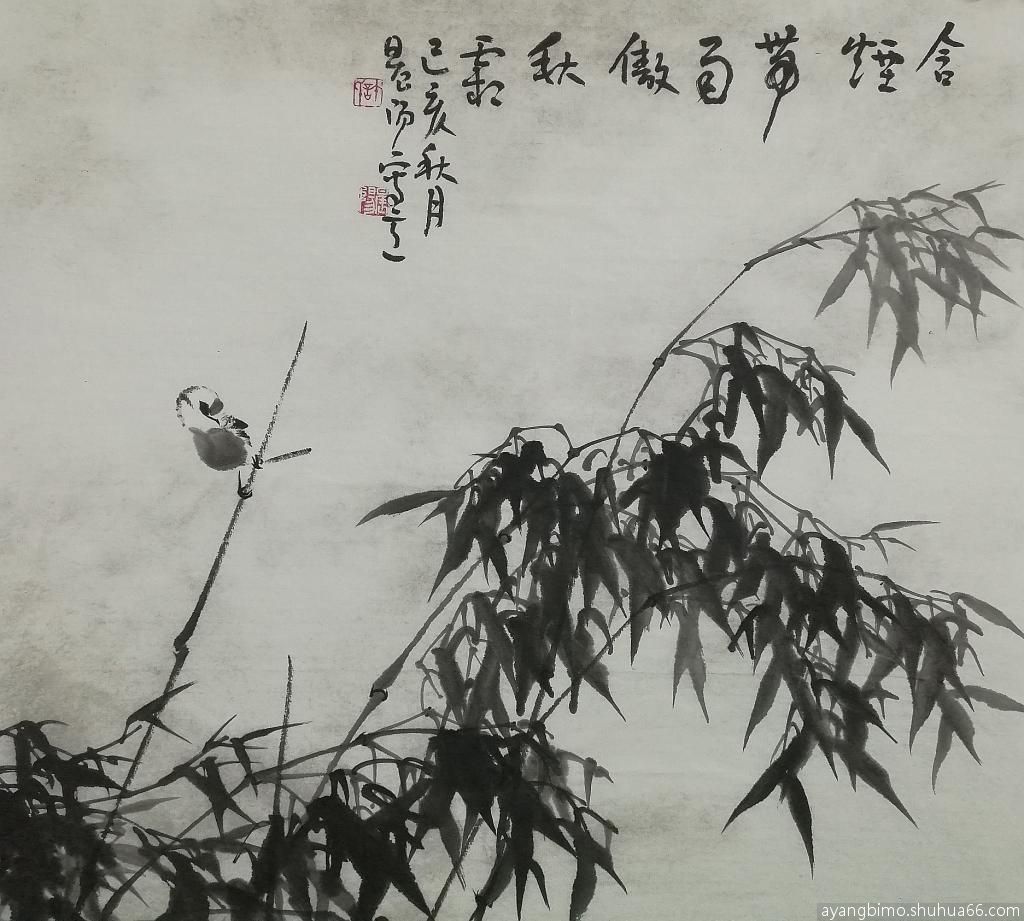 含煙帶雨傲秋霜
己亥秋月
晨阳寫
ayangbimo.shuhua66.com